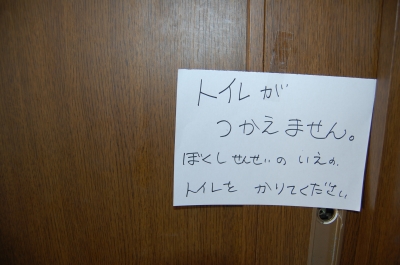 トイレが
つかえません。
ぼくしせんせいの いえの
トイレを かりてください